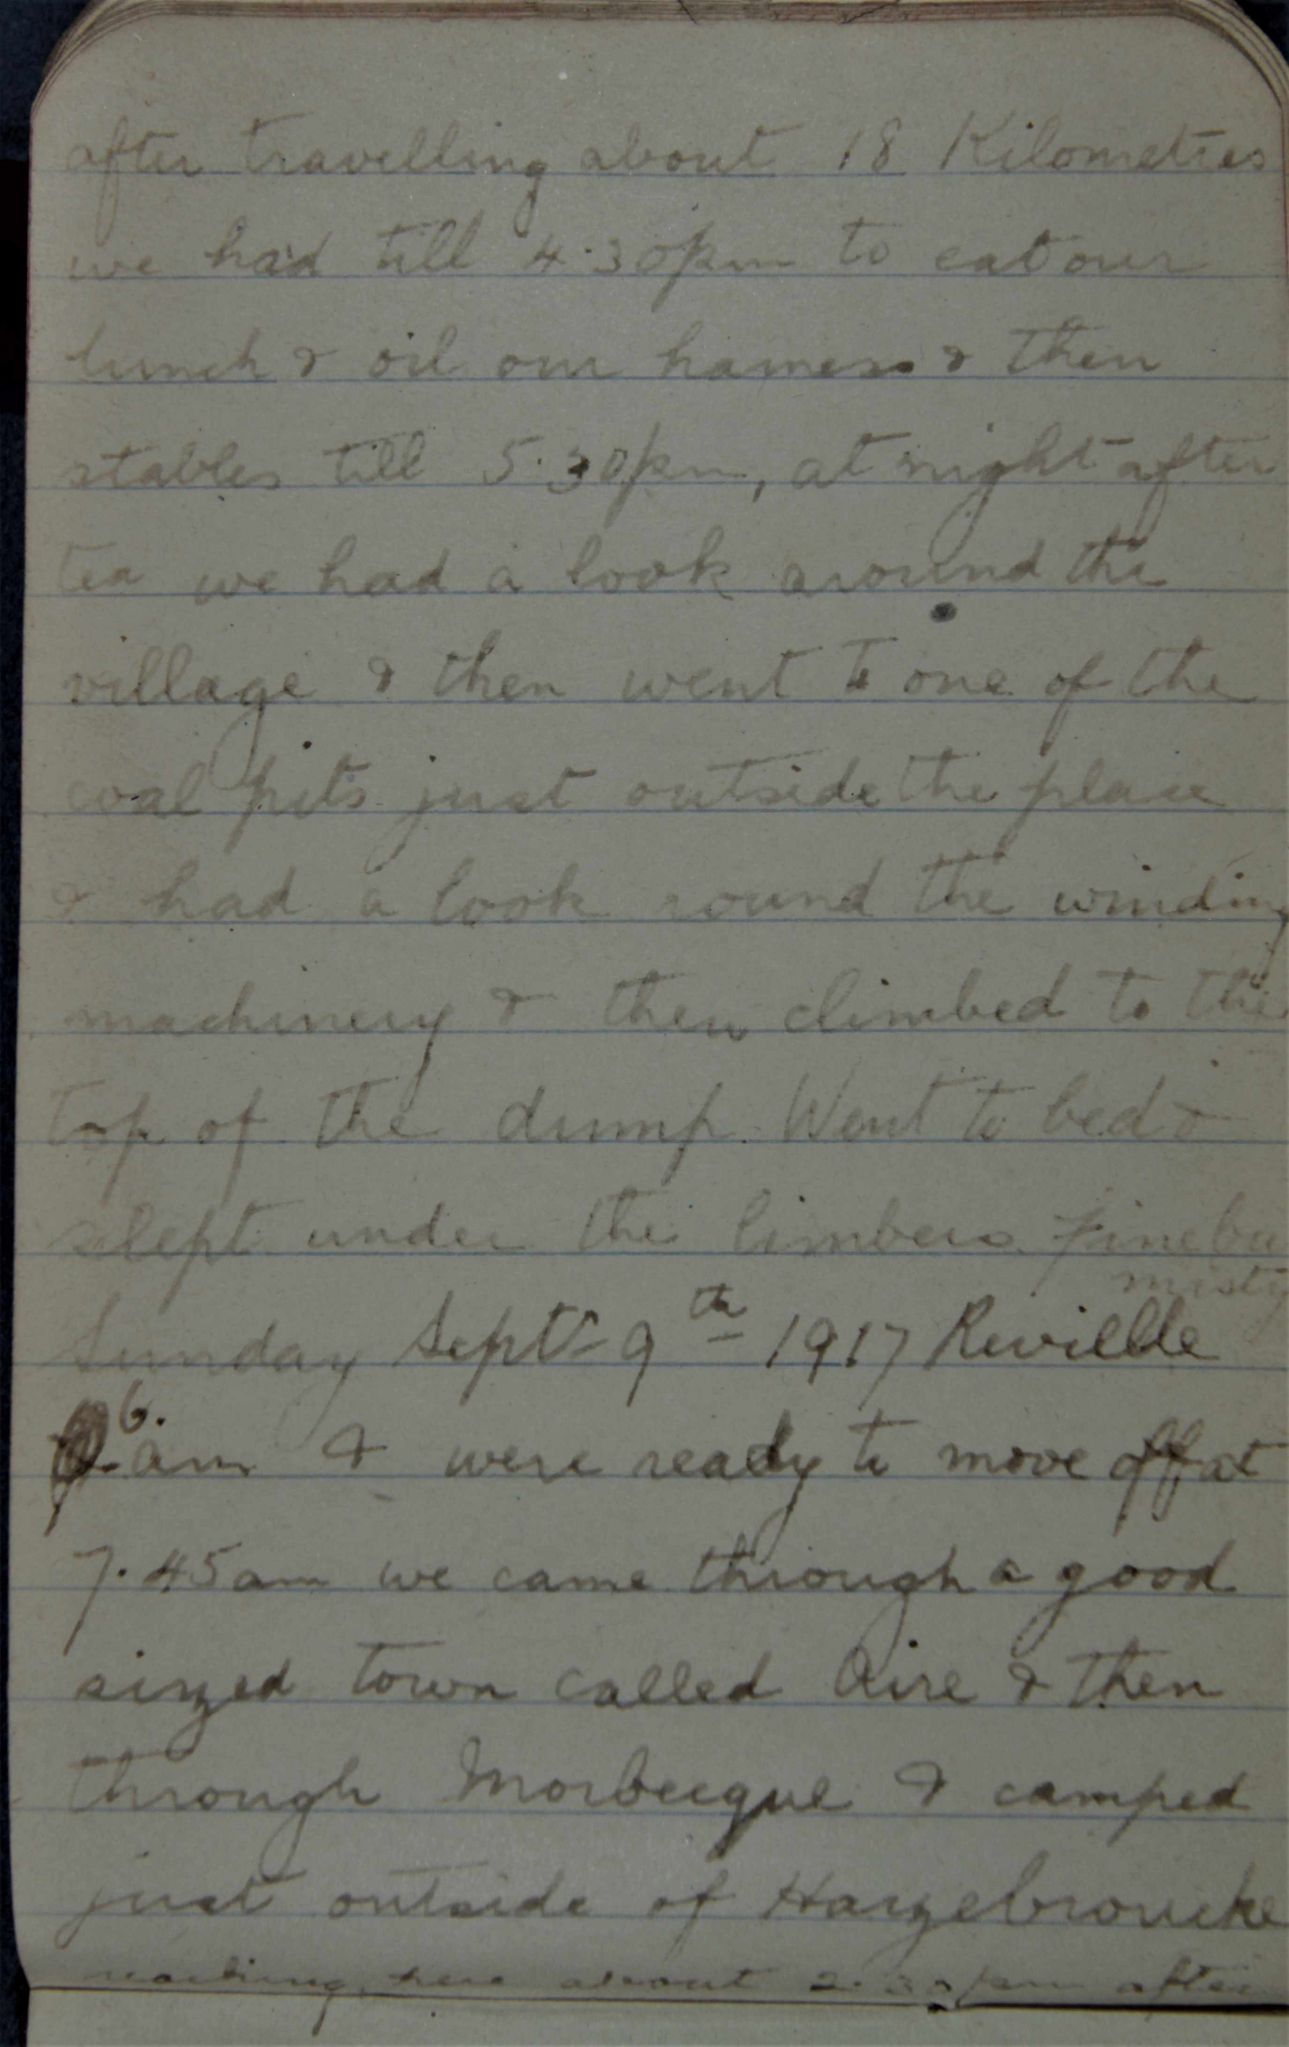 after travelling about 18 Kilometres
we had till 4.30pm to eat our
lunch & oil our harness & then
stables till 5.30pm, at night after
tea we had a look around the
village & then went to one of the
coal pits just outside the place
& had a look round the winding
machinery & then climbed to the
top of the dump. Went to bed &
slept under the limbers. Fine bu
misty
Sunday Sept 9th 1917 Reveille
6.
am & were ready to move off at
7.45am we came through a good
sized town called Aire & then
through Morbecque & camped
just outside of Hazebroucke
reaching here about 2.30pm after